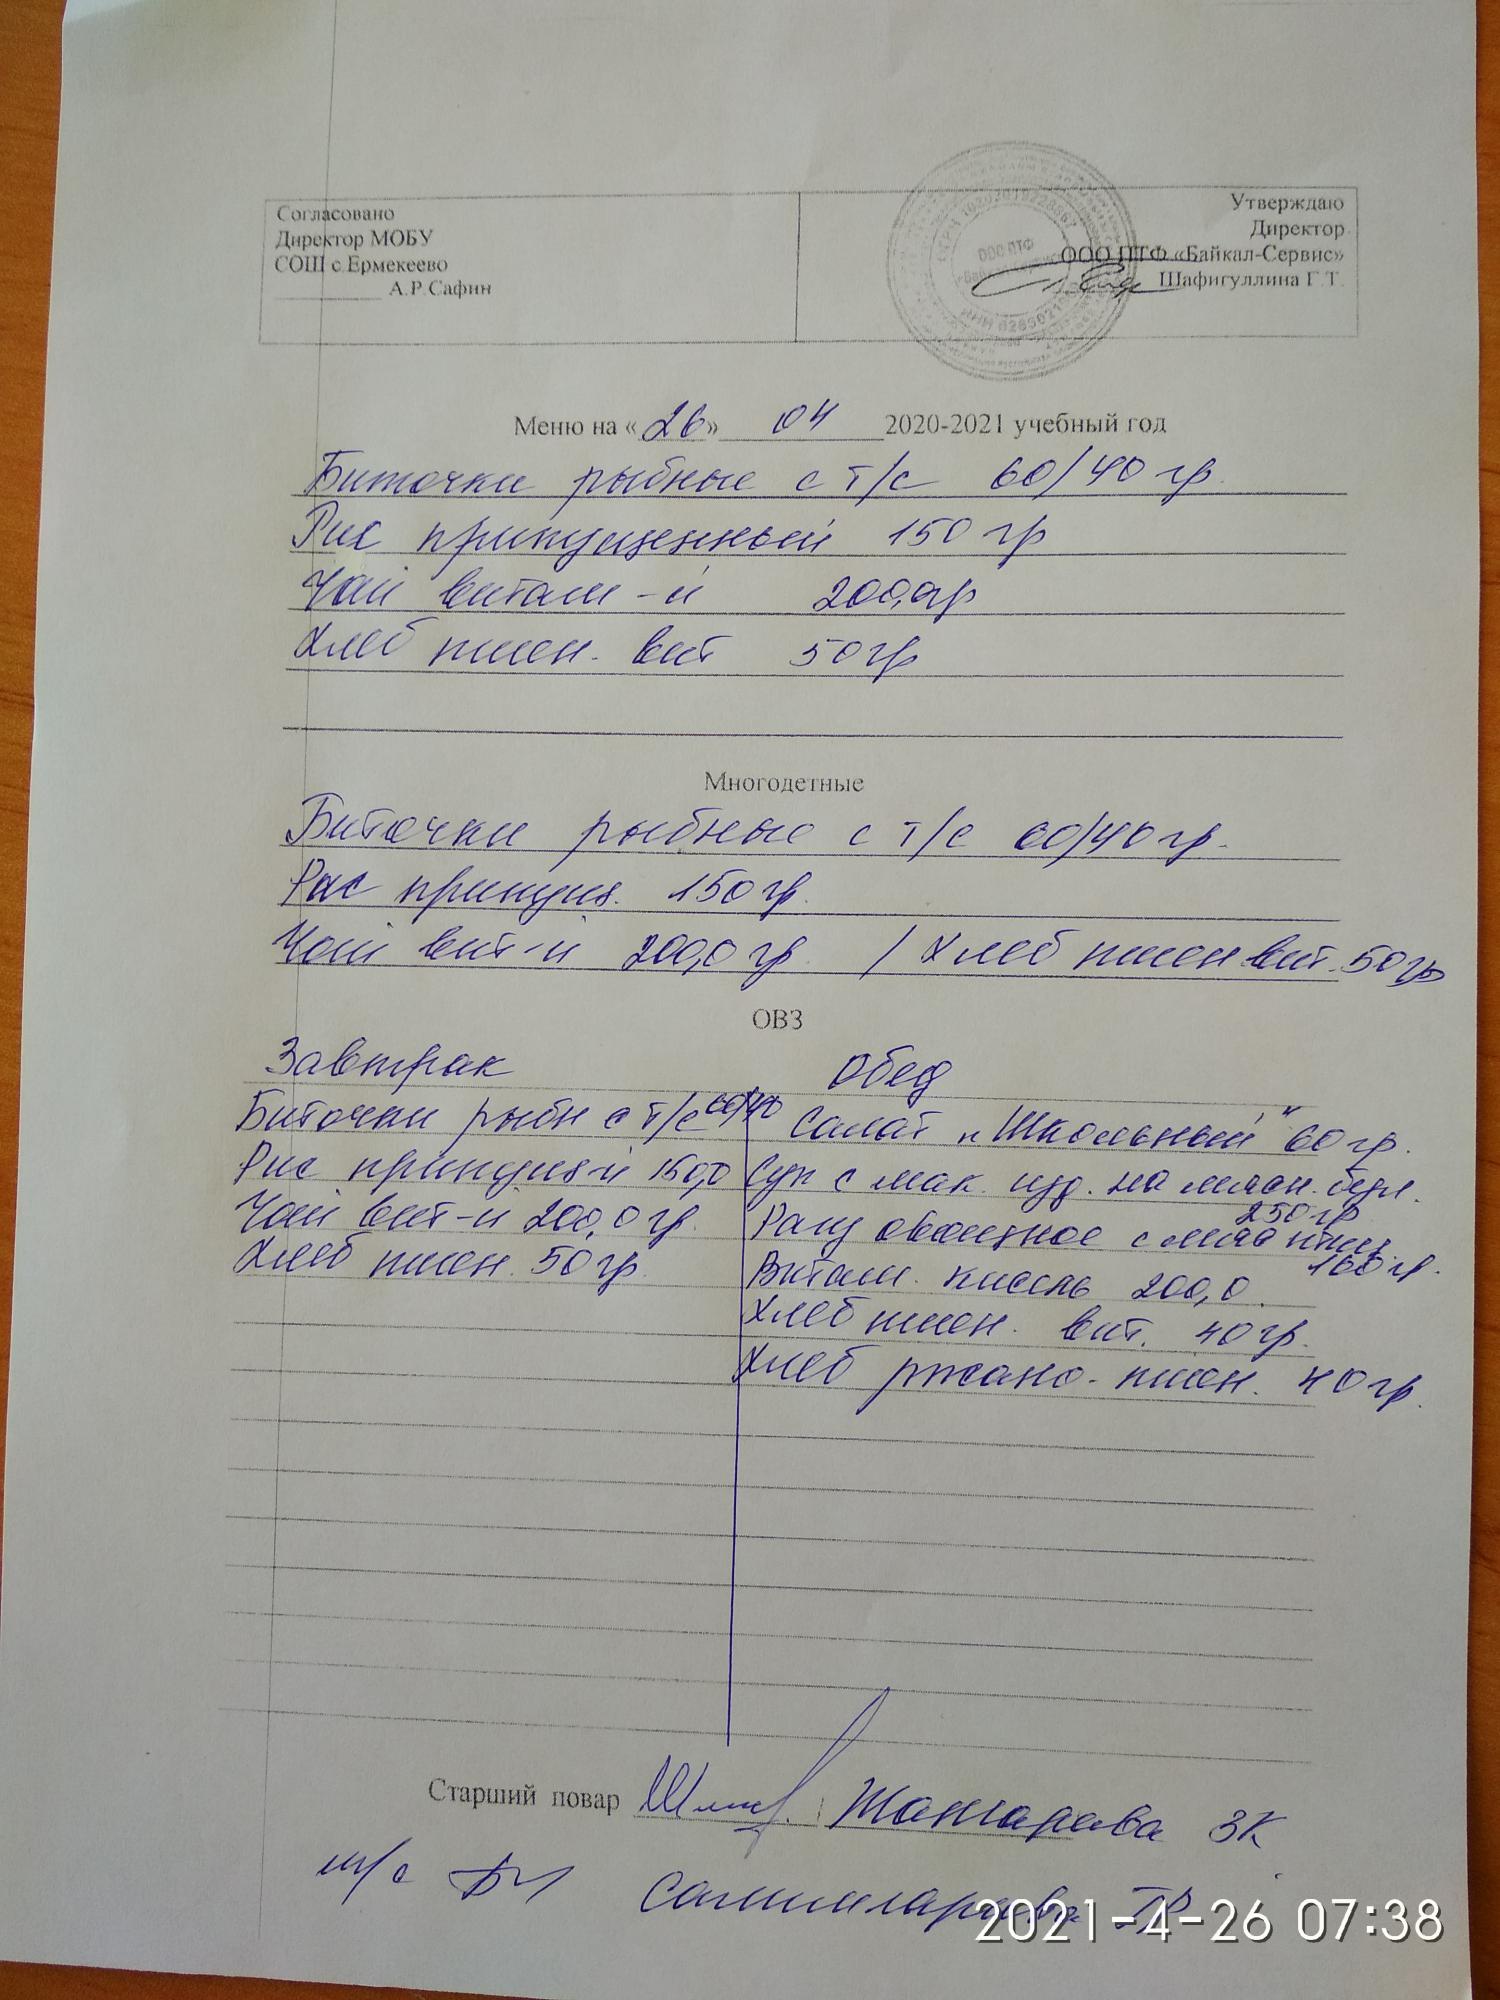 Согласовано
Директор МОБУ
СОШ с.Ермекеево
А.Р.Сафин
Утверждаю
Директор
ООО ПТФ «Байкал-Сервис»
Шафигуллина Г.Т.
ООО ПТФ
Меню на «26» 04 2020-2021 учебный год
Биточки рыбные с т/с 60/40 гр.
Рис припущенный 150 гр
Чай витам-й 200,0гр
Хлеб пшен. вит 50гр
Многодетные
Биточки рыбные с т/с 60/40 гр.
Рис припущ. 150 гр.
Чай вит-й 200,0 гр. / Хлеб пшен вит. 50гр
ОВЗ
Завтрак
Биточки рыбн с т/с 60/40
Рис припущ-й 150,0
Чай вит-й 200,0 гр.
Хлеб пшен. 50 гр.
Обед
Салат "Школьный" 60 гр.
Суп с мак. изд. на мясн. бул.
250 гр
Рагу овощное с мяса птиц.
160 гр.
Витам. кисель 200,0.
Хлеб пшен. вит. 40 гр.
Хлеб ржано-пшен. 40 гр.
Старший повар ЗК
м/с ГР
2021-4-26 07:38